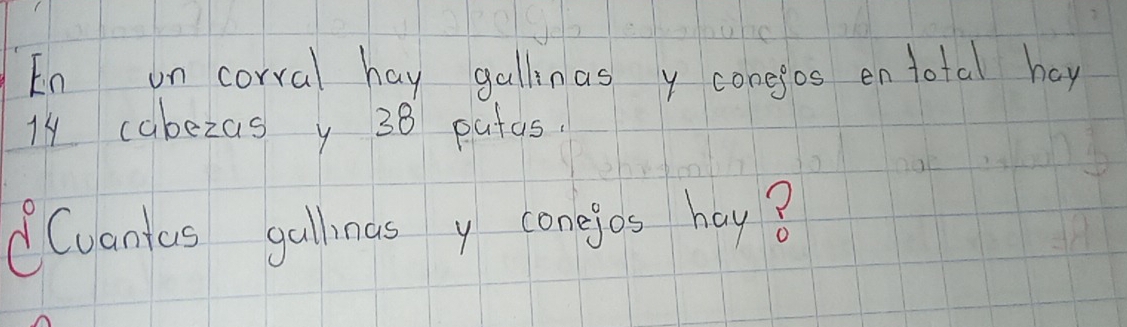 En un corral hay gallinas y conejos en total hay
14 cabezas y 38 patas.
¿Cuantas gallinas y conejos hay?